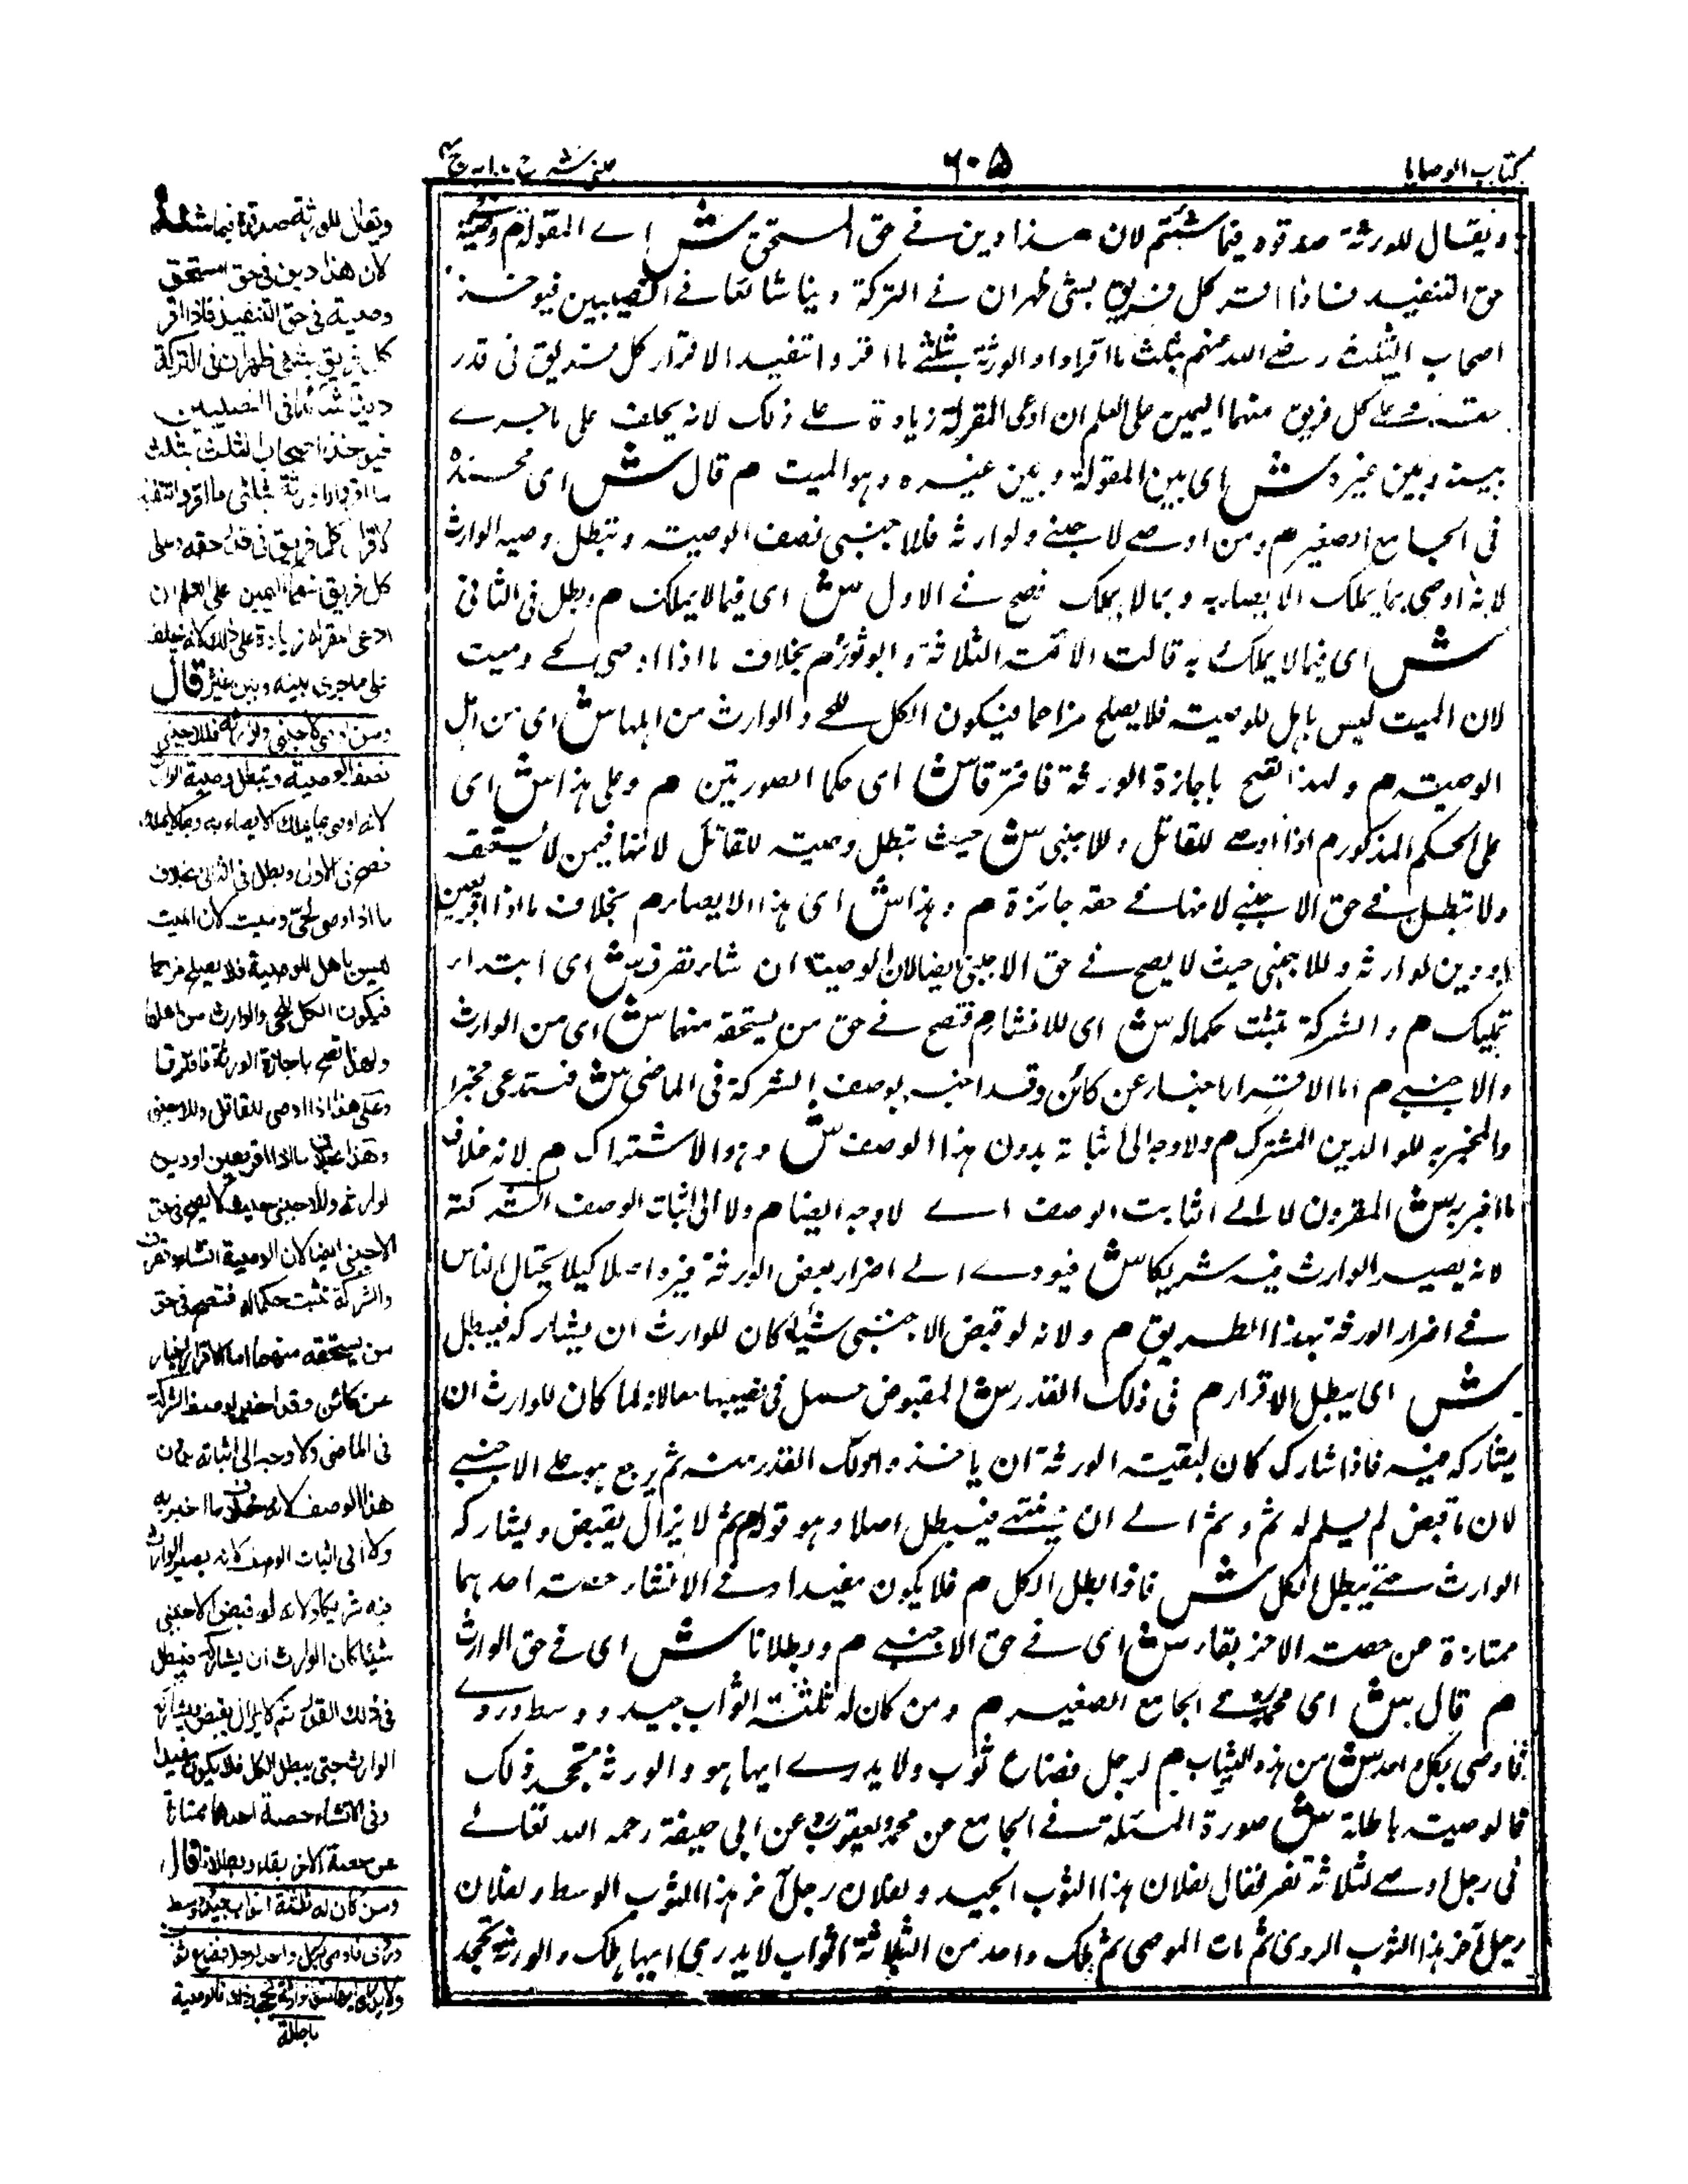 كتاب الوصايا
٦٠٥
عينى شرح هدايه ج ٤
ويقال للورثة صدقوه فيما شئتم لان هذا دين فى حق المستحق ش اے المقرله م وصية
حق التنفيذ فاذا اقر كل فريق بشئ ظهران فے التركة دينا شائعا فے النصيبين فيوخذ
اصحاب الثلث بثلث ما اقروا والورثة بثلثے ما اقروا تنفيذ الاقرار كل فريق فى قدر
حقه وعلے كل فريق منهما اليمين على العلم ان ادعى المقرله زيادة علے ذلك لانه يحلف على ما جرے
بينه وبين غيره ش اى بين المقرله وبين غيره وهو الميت م قال ش اى محمد
فى الجامع الصغير م ومن اوصے لاجنبے ولوارثه فللاجنبى نصف الوصيته وتبطل وصيه الوارث
لانه اوصى بما يملك الايصاء به وبما لا يملك فصح فے الاول ش اى فيما لا يملك م وبطل فى الثانى
ش اى فيما لا يملك به قالت الائمة الثلاثة وابو ثور م بخلاف ما اذا اوصى لحے وميت
لان الميت ليس باهل للوصيته فلا يصلح مزاحما فيكون الكل للحے والوارث من اهلها ش اى من اهل
الوصيته م ولهذا تصح باجازة الورثة فافترقا ش اى حكما الصورتين م وعلى هذا ش اى
على الحكم المذكور م اذا اوصے للقاتل وللاجنبى ش حيث تبطل وصيته للقاتل لانها فيمن لا يستحقه
ولا تبطل فے حق الاجنبے لانها فے حقه جائزة م وهذا ش اى هذا الايصاء م بخلاف ما اذا اقر بعين
او دين لوارثه وللاجنبى حيث لا يصح فے حق الاجنبى ايضا لان الوصية انشاء تصرف ش اى ابتداء
تمليك م والشركة تثبت حكما له ش اى للانشاء م فتصح فے حق من يستحقه منهما ش اى من الوارث
والاجنبے م اما الاقرار اخبار عن كائن وقد اخبر بوصف الشركة فى الماضى ش فستدعى مخبرا
والمخبر به الدين المشترك م ولا وجه الى اثباته بدون هذا الوصف ش وهو الاشتراك م لانه خلاف
ما اخبر به ش المقرون لا الے اثابت الوصف اے لا وجه ايضا م ولا الى اثبات الوصف الشركته
لانه يصير الوارث فيه شريكا ش فيودے الے اضرار بعض الورثة اصلا كيلا يحتال الناس
فے اضرار الورثة بهذا الطريق م ولانه لو قبض الاجنبى شيئا كان للوارث ان يشاركه فيبطل
ش اى يبطل الاقرار م فى ذلك القدر ش المقبوض لانه لما كان للوارث ان
يشاركه فيه فاذا شارك كان لبقيت الورثة ان ياخذوا ذلك القدر منه ثم يرجع هو علے الاجنبے
لان ما قبض لم يسلم له ثم وثم الے ان فيبطل اصلا وهو قوله م ثم لا يزال يقبض ويشاركه
الوارث حتے يبطل الكل ش فاذا بطل الكل م فلا يكون مفيدا وفے الانشاء حصة احدهما
ممتازة عن حصة الاخر بقاء ش اى فے حق الاجنبے م وبطلانا ش اى فے حق الوارث
م قال ش اى محمد فے الجامع الصغير م ومن كان له ثلثة اثواب جيد ووسط وردے
فاوصى بكل واحد ش من هذه الثياب م لرجل فضاع ثوب ولا يدرے ايها هو والورثة تجحد ذلك
فالوصيته باطلة ش صورة المسئلة فے الجامع عن محمد عن يعقوب عن ابى حنيفة رحمه الله تعالے
فى رجل اوصے لثلاثة نفر فقال لفلان هذا الثوب الجيد ولفلان رجل آخر هذا الثوب الوسط ولفلان
رجل آخر هذا الثوب الردى ثم مات الموصى ثم هلك واحد من الثلاثة اثواب لا يدرى ايها هلك والورثة تجحد
ويقال للورثة صدقوه فيما شئتم
لان هذا دين فى حق المستحق
وصية فى حق التنفيذ فاذا اقر
كل فريق بشئ ظهر ان فى التركة
دينا شائعا فى النصيبين
فيوخذ اصحاب الثلث بثلث
ما اقروا والورثة بثلثى ما اقروا تنفيذا
لاقرار كل فريق فى قدر حقه وعلى
كل فريق منهما اليمين على العلم ان
ادعى المقر له زيادة على ذلك لانه يحلف
على ما جرى بينه وبين غيره قال
ومن اوصى لاجنبى ولوارثه فللاجنبى
نصف الوصية وتبطل وصية الوارث
لانه اوصى بما يملك الايصاء به وبما لا يملك
فصح فى الاول وبطل فى الثانى بخلاف
ما اذا اوصى لحى وميت لان الميت
ليس باهل للوصية فلا يصلح مزاحما
فيكون الكل للحى والوارث من اهلها
ولهذا تصح باجازة الورثة فافترقا
وعلى هذا اذا اوصى للقاتل وللاجنبى
وهذا بخلاف ما اذا اقر بعين او دين
لوارثه وللاجنبى حيث لا يصح فى حق
الاجنبى ايضا لان الوصية انشاء تصرف
والشركة تثبت حكما له فتصح فى حق
من يستحقه منهما اما الاقرار اخبار
عن كائن وقد اخبر بوصف الشركة
فى الماضى ولا وجه الى اثباته بدون
هذا الوصف لانه خلاف ما اخبر به
ولا الى اثبات الوصف لانه يصير الوارث
فيه شريكا ولانه لو قبض الاجنبى
شيئا كان للوارث ان يشاركه فيبطل
فى ذلك القدر ثم لا يزال يقبض ويشاركه
الوارث حتى يبطل الكل فلا يكون مفيدا
وفى الانشاء حصة احدهما ممتازة
عن حصة الاخر بقاء وبطلانا قال
ومن كان له ثلثة اثواب جيد ووسط
وردى فاوصى بكل واحد لرجل فضاع ثوب
ولا يدرى ايها هو والورثة تجحد ذلك فالوصية
باطلة